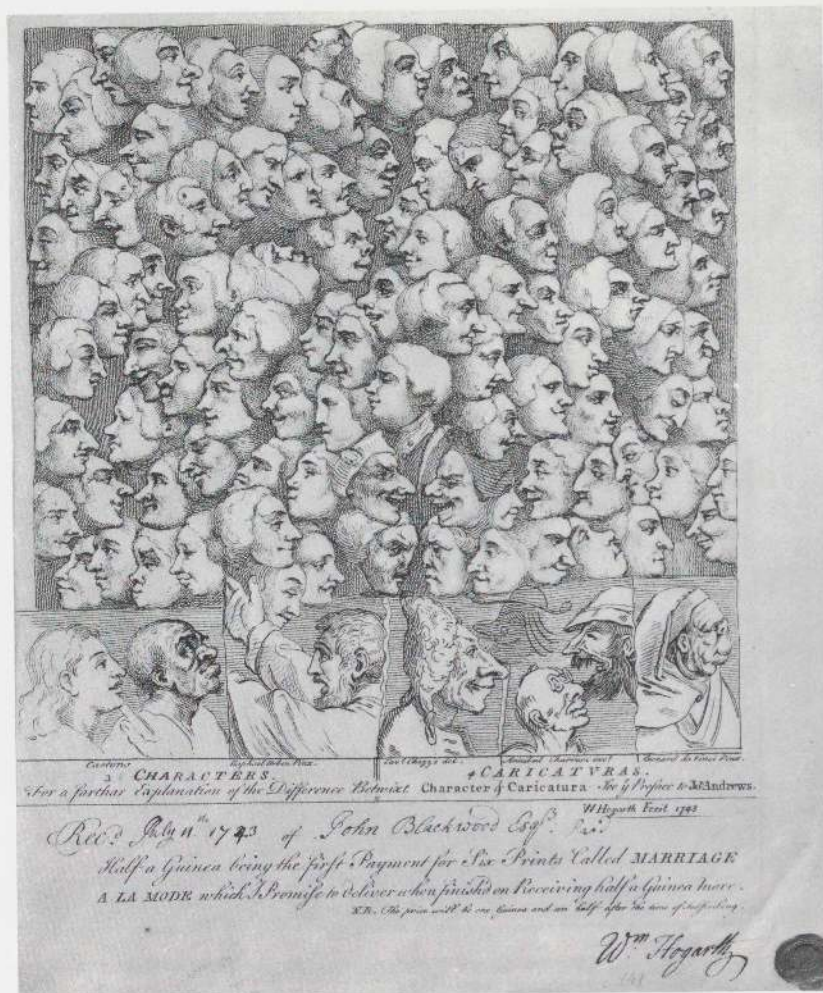 Cartons
Raphael Urbin Pinx.
Cavr. Ghezze del.
Annibal Charracci
Leonard da Vinci Pinx.
3 CHARACTERS.
4 CARICATVRAS.
For a farthar Explanation of the Difference Betwixt Character & Caricatura See ye Preface to Jos. Andrews.
W. Hogarth Fecit 1743
Rec'd July 11th 1743 of John Blackwood Esqr.
Half a Guinea being the first Payment for Six Prints Called MARRIAGE
A LA MODE which I Promise to deliver when finish'd on Receiving half a Guinea more.
N.B. The price will be one Guinea and an half after the time of Subscribing.
Wm Hogarth